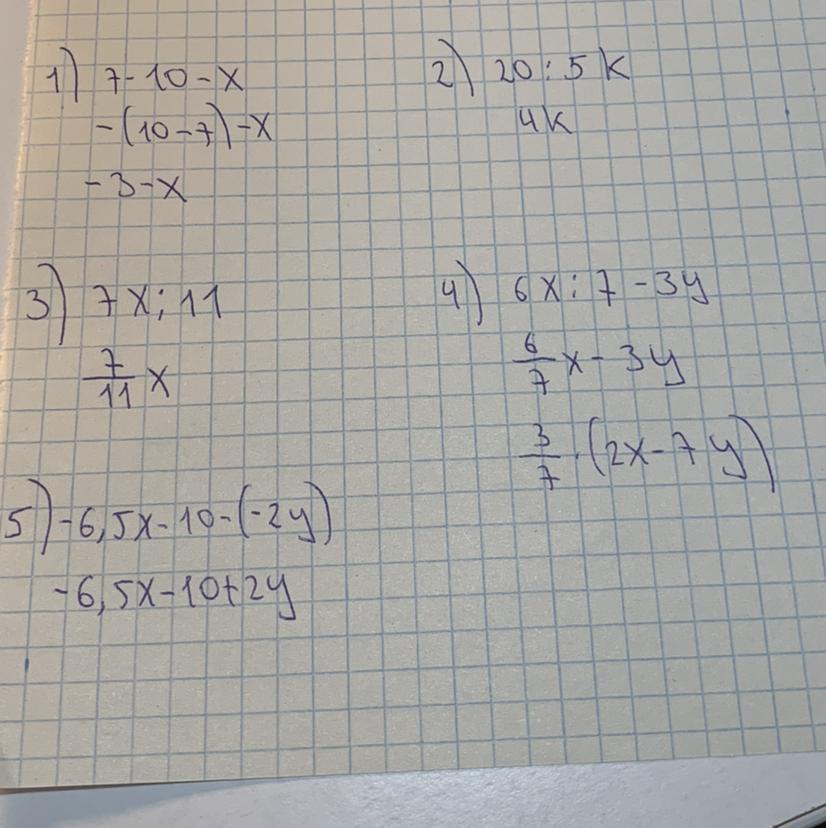 1) 7-10-x
-(10-7)-x
-3-x
2) 20:5k
4k
3) 7x:11
7/11 x
4) 6x:7-3y
6/7 x-3y
3/7 ·(2x-7y)
5) -6,5x-10-(-2y)
-6,5x-10+2y